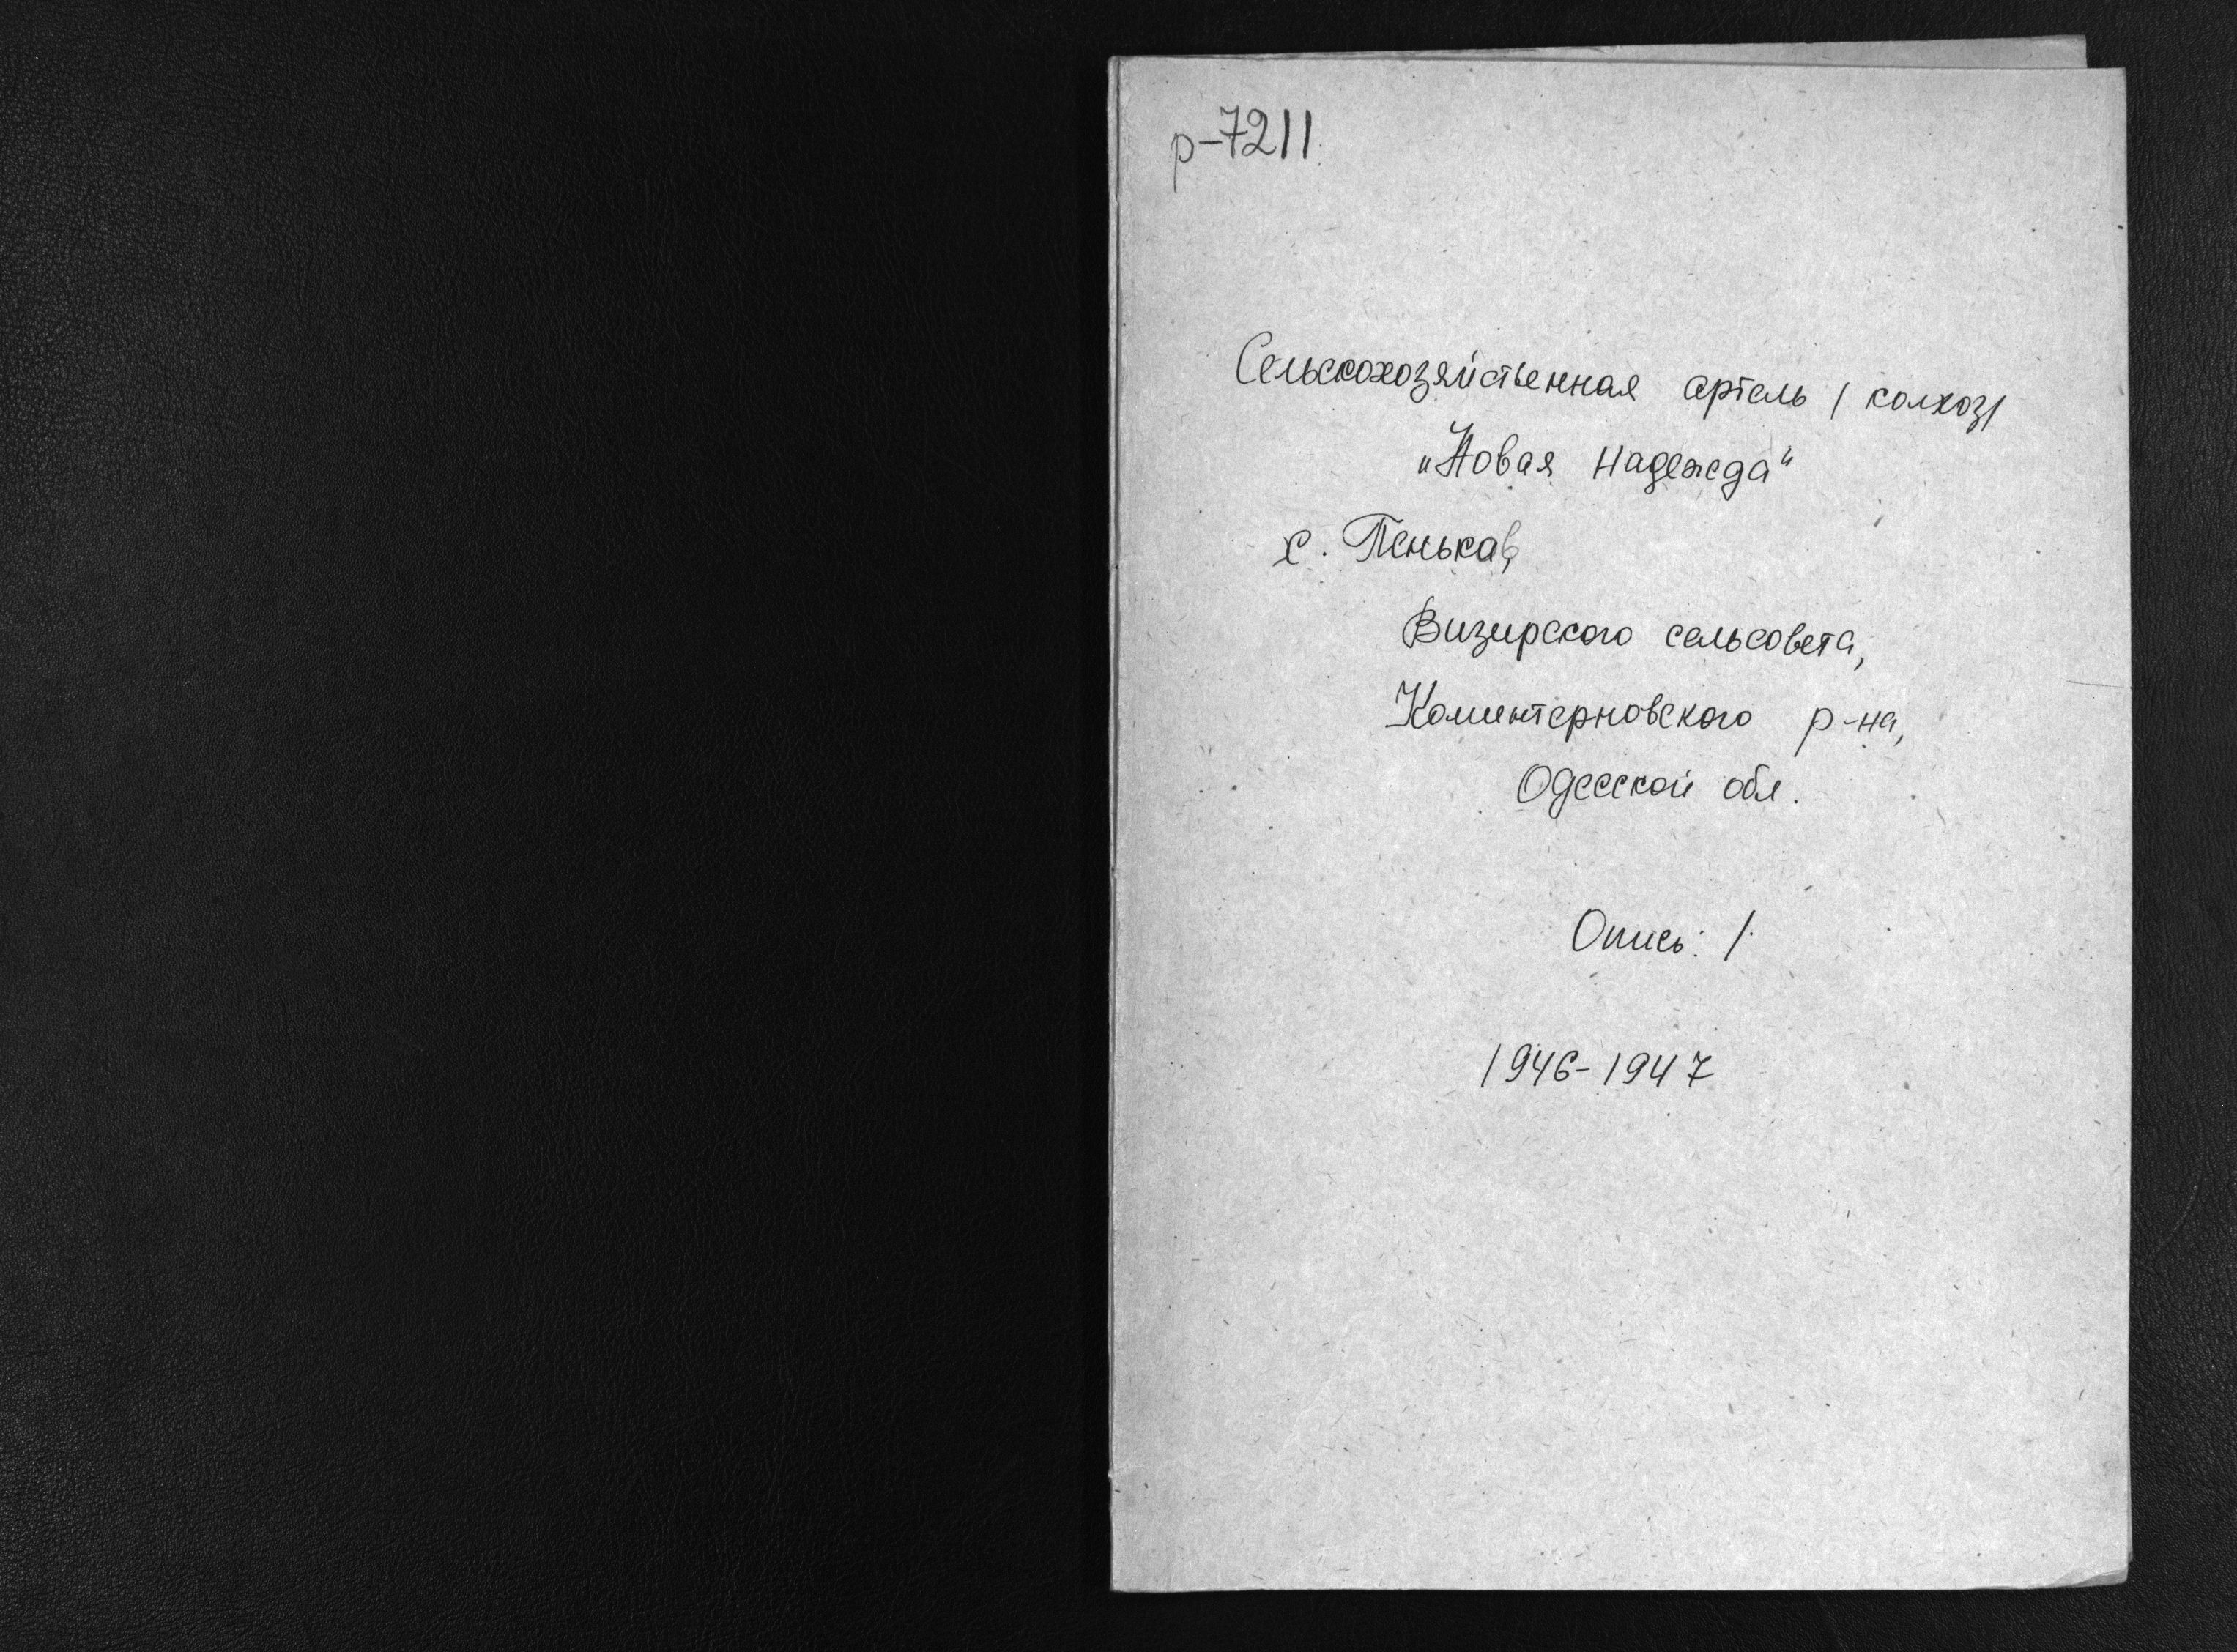 р-7211.
Сельскохозяйственная артель /колхоз/
„Новая надежда“
с. Пенька,
Визирского сельсовета,
Коминтерновского р-на,
Одесской обл.
Опись: 1.
1946-1947